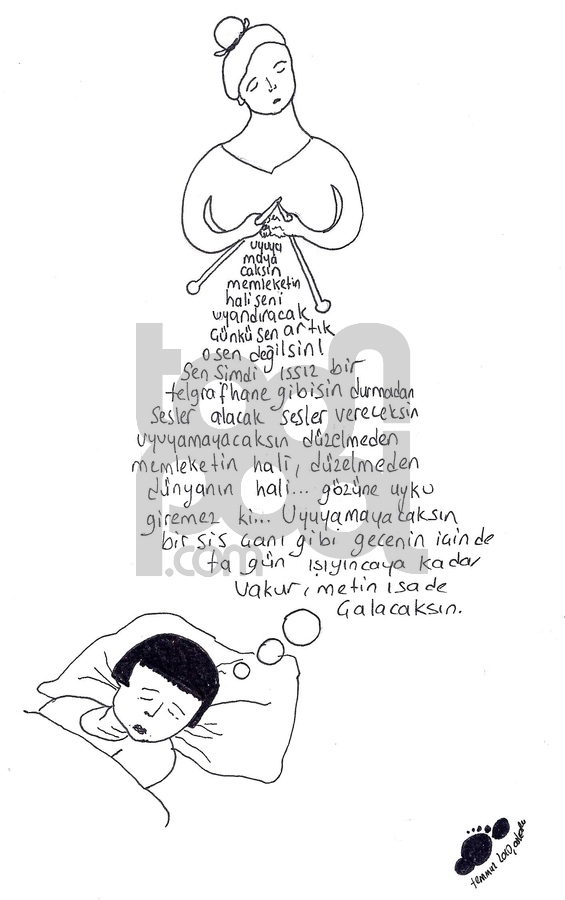 sen
uyuya
maya
caksın
memleketin
hali seni
uyandıracak
Günkü sen artık
o sen değilsin!
Sen Simdi ıssız bir
telgrafhane gibisin durmadan
Sesler alacak sesler vereceksin
uyuyamayacaksın düzelmeden
memleketin hali, düzelmeden
dünyanın hali... gözüne uyku
giremez ki... Uyuyamayacaksın
bir sis çanı gibi gecenin içinde
ta gün ışıyıncaya kadar
Vakur, metin, sade
Galacaksın.
toonpool
.com
temmuz 2010, ankara